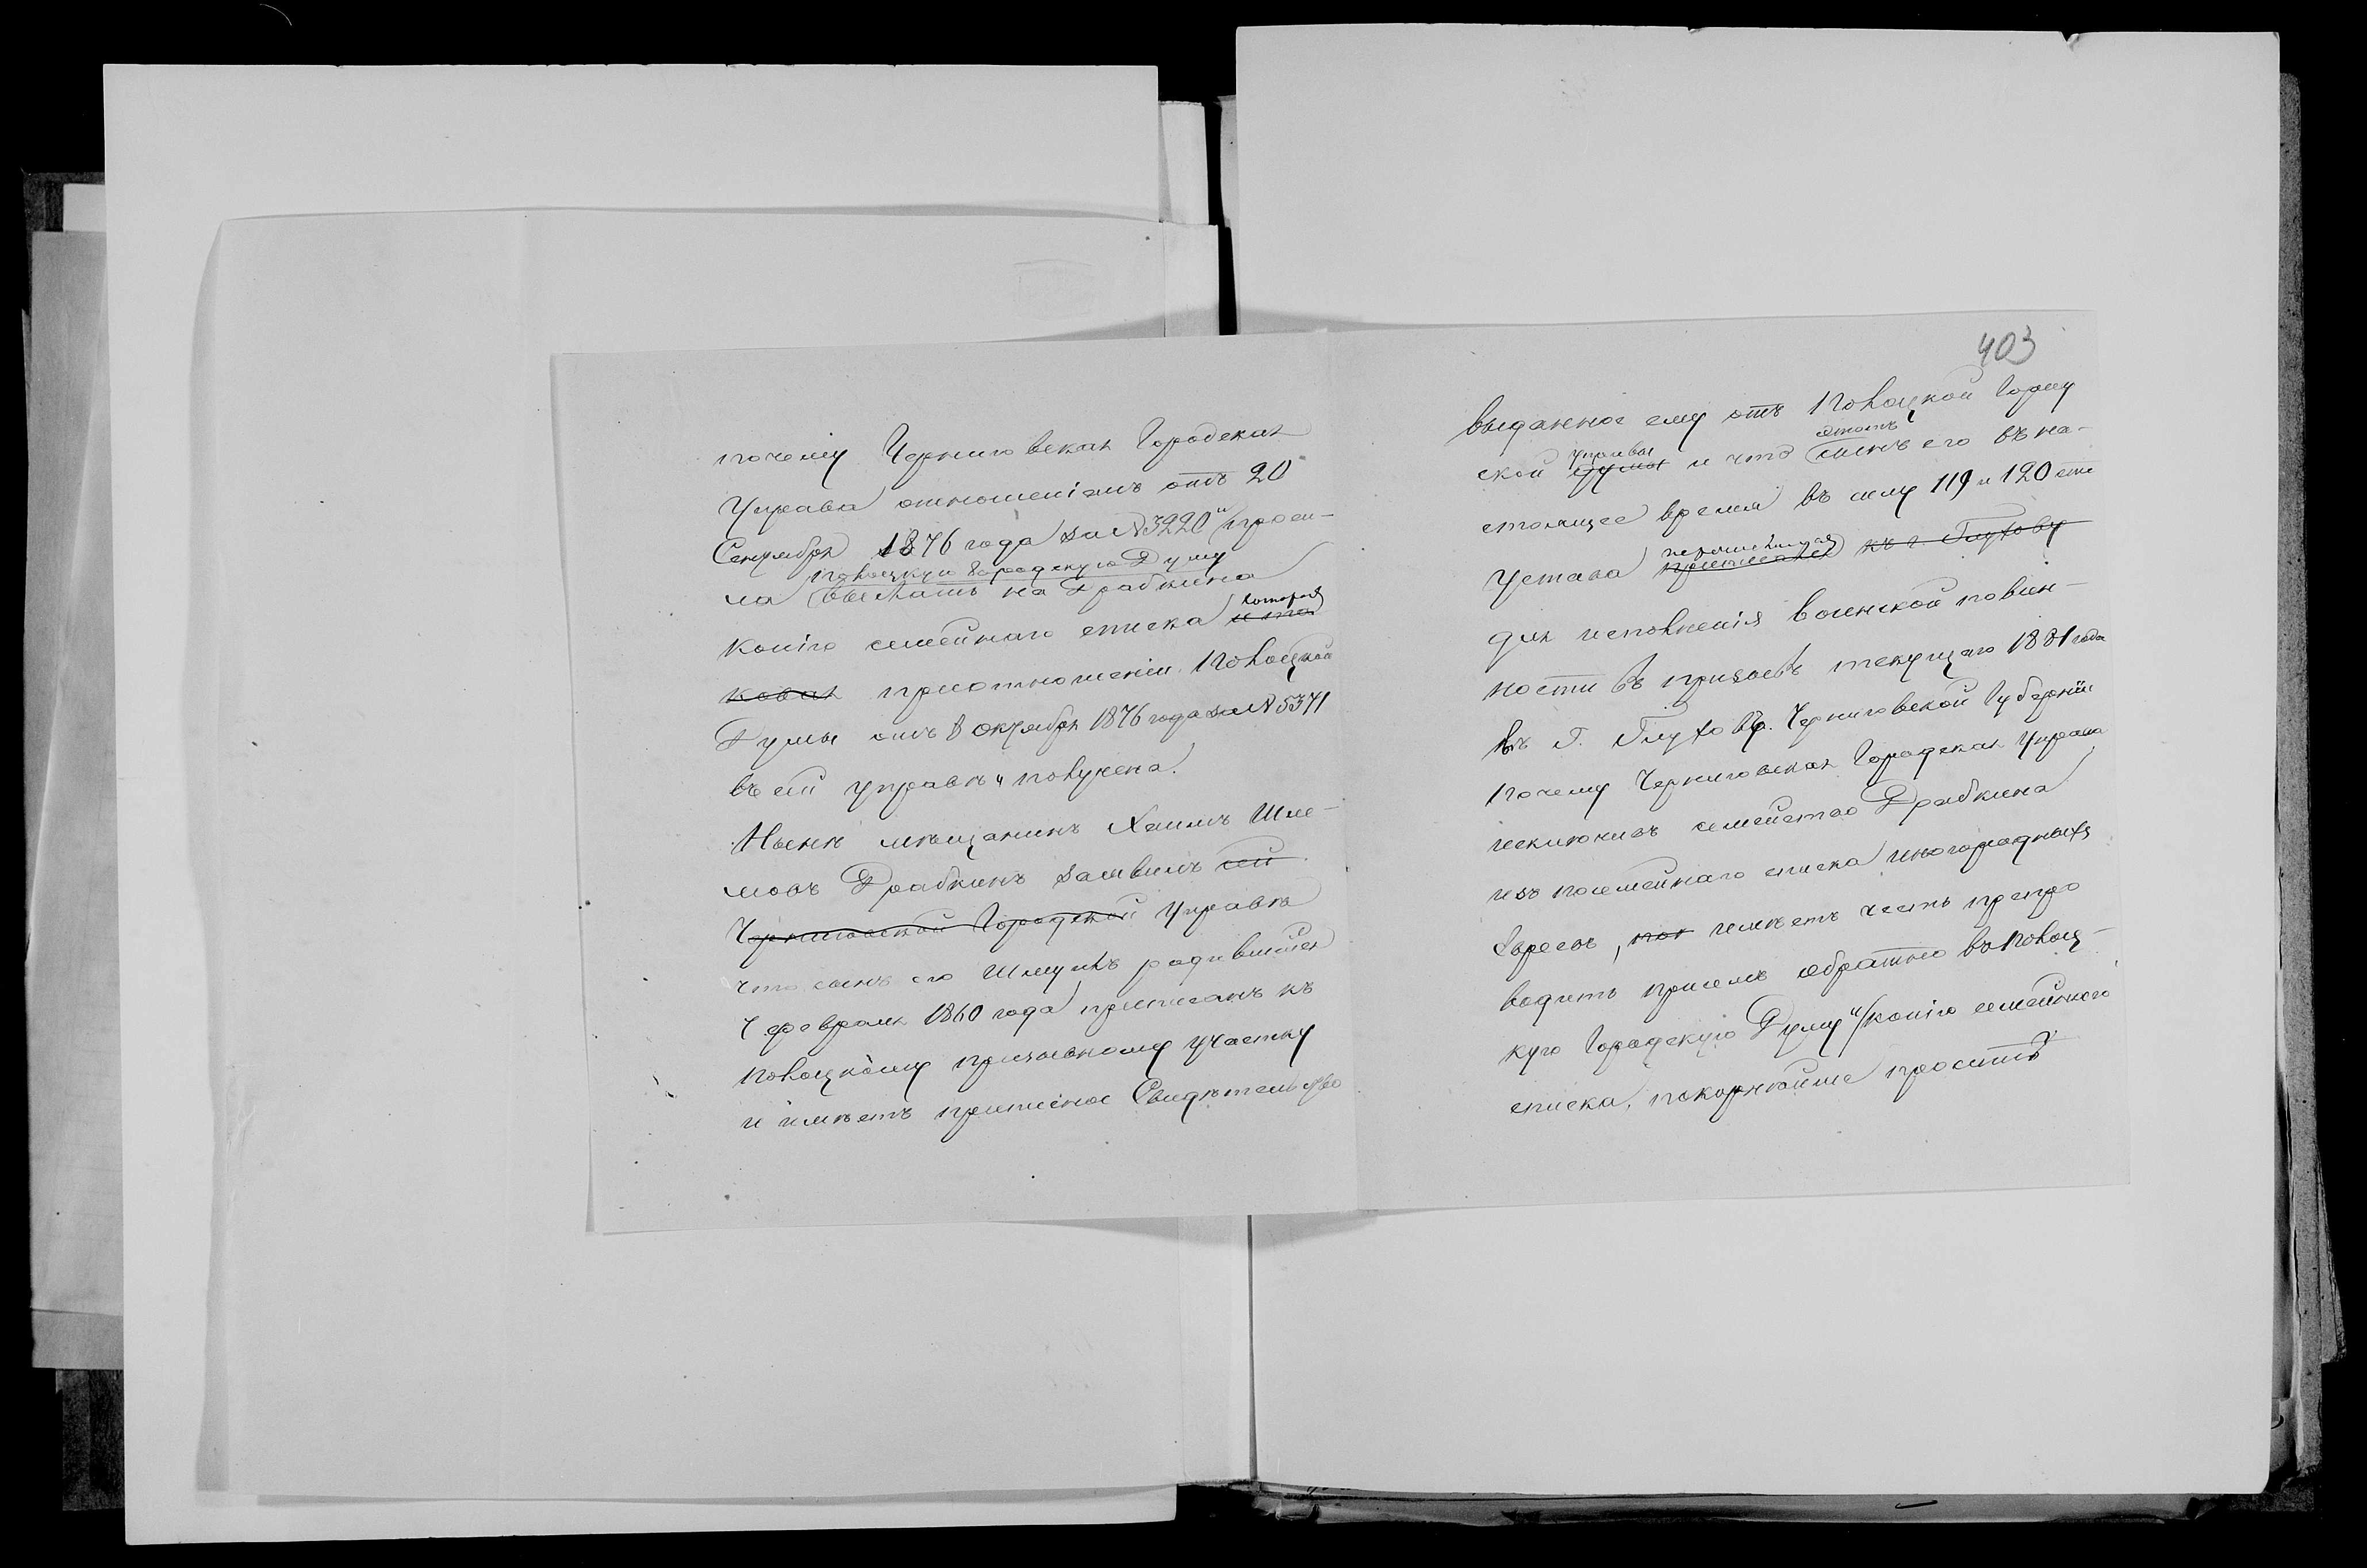 403
почему Черниговская Городская
Управа отношеніемъ отъ 20
Сентября 1876 года за № 3220 проси-
Полоцкую Городскую Думу
ла выслать на Драбкина
которая
копію семейнаго списка
ковая приотношеніи Полоцкой
Думы отъ 8 октября 1876 года за № 5371
въ сей управѣ получена.
Нынѣ мѣщанинъ Хаимъ Шле-
мовъ Драбкинъ заявилъ сей
Черниговской Городской Управѣ
что сынъ его Шмуилъ родившійся
4 февраля 1860 года приписанъ къ
Полоцкому призывному участку
и имѣетъ приписное Свидѣтельство
выданное ему отъ Полоцкой Город
управы этотъ
ской думы и что сынъ его въ на-
стоящее время въ силу 119 и 120 ст
перечислился
Устава приписался къ г. Глухову
для исполненія воинской повин-
ности въ призывъ текущаго 1881 года
въ Г. Глуховѣ. Черниговской Губерніи
почему Черниговская Городская Управа
исключивъ семейство Драбкина
изъ посемейнаго списка иногородныхъ
Евреевъ, имѣетъ честь препро
водить присемъ обратно въ Полоц-
кую Городскую Думу копію семейного
списка, покорнѣйше проситъ